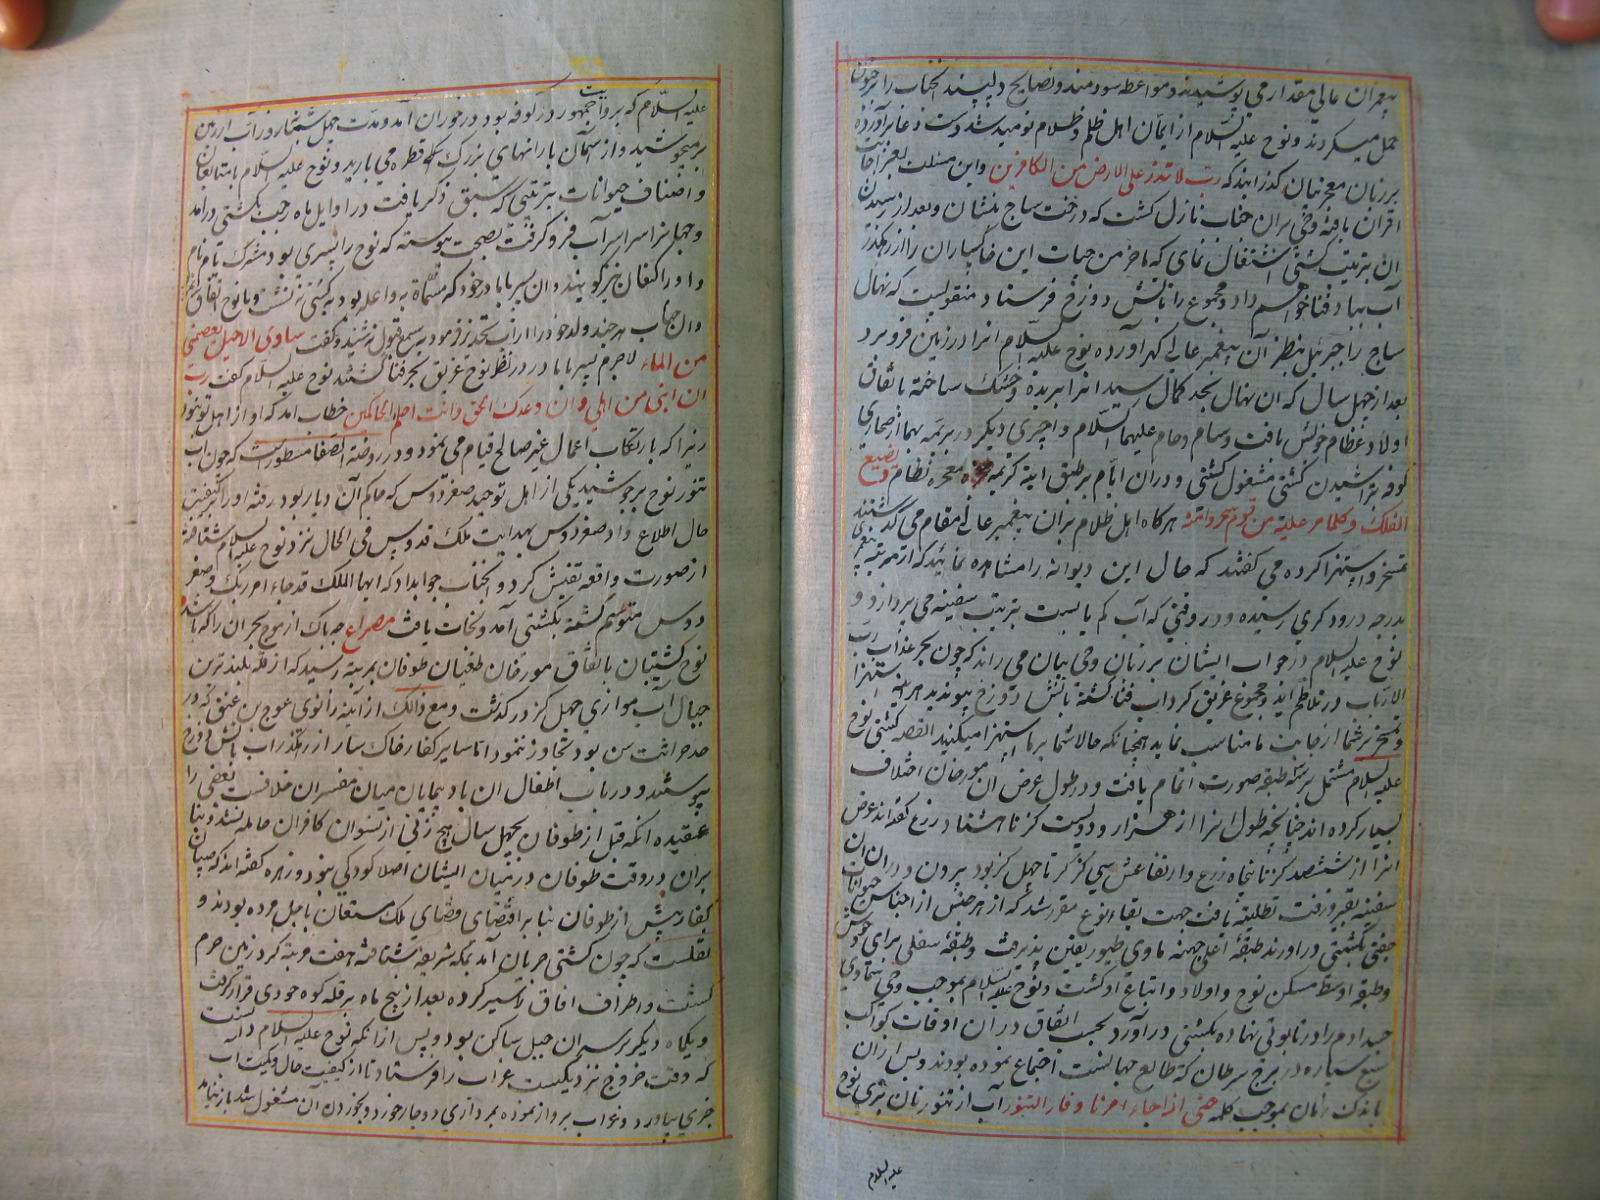 پیغمبران عالی مقدار می پوشیدند و مواعظ سودمند و نصایح دلپسند آنجناب را بر جنون
حمل میکردند و نوح علیه السلام از ایمان اهل ظلم و ظلام نومید شد دست دعا برآورده
بر زبان معجز بیان گذرانید که رب لا تذر علی الارض من الکافرین و این مسئلت بعز اجابت
اقتران یافته وحی بران جناب نازل گشت که درخت ساج بنشان و بعد از رسیدن
آن بترتیب کشتی اشتغال نمای که ما خرمن حیات این خاکساران را از رهگذر
آب بباد فنا خواهیم داد و مجموع را بآتش دوزخ فرستاد منقولست که نهال
ساج را جبرئیل بنظر آن پیغمبر عالی گهر آورده نوح علیه السلام آنرا در زمین فرو برد
بعد از چهل سال که آن نهال بحد کمال رسید آنرا بریده و خشک ساخته باتفاق
اولاد عظام خویش یافث و سام و حام علیهما السلام و اجیری دیگر در
کوفه بتراشیدن کشتی مشغول گشتی و دران ایام بر طبق آیه کریمه معجزه نظام و یصنع
الفلک و کلما مر علیه من قومه سخروا منه هرگاه اهل ظلام بران پیغمبر عالی مقام می گذشتند
تمسخر و استهزا کرده می گفتند که حال این دیوانه را مشاهده نمائید که از مرتبه پیغمبری
بدرجه درودگری رسیده و در وقتی که آب کم یابست بترتیب سفینه می پردازد و
نوح علیه السلام در جواب ایشان بر زبان وحی بیان می راند که چون بحر عذاب رب
الارباب در تلاطم آید و مجموع غریق گرداب فنا گشته بآتش دوزخ پیوندید هرآینه استهزا
و تمسخر بر شما از جانب ما مناسب نماید همچنانکه حالا شما بر ما استهزا میکنید القصه کشتی نوح
علیه السلام مشتمل بر سه طبقه صورت اتمام یافت و در طول و عرض آن مورخان اختلاف
بسیار کرده اند چنانچه طول آنرا از هزار و دویست گز تا هشتاد زرع گفته اند و عرض
آنرا از ششصد گز تا پنجاه زرع و ارتفاعش سی گز تا چهل گز بود بیرون و درون آن
سفینه بقیر و زفت تطلیه یافت جهت بقاء نوع مقرر شد که از هر جنس از اجناس حیوانات
جفتی بکشتی درآورند طبقه اعلی جهة ماوی طیور تعین پذیرفت و طبقه سفلی برای وحوش
و طبقه اوسط مسکن نوح و اولاد و اتباع او گشت و نوح علیه السلام بموجب وحی سماوی
جسد آدم را در تابوتی نهاده بکشتی درآورد بحسب اتفاق دران اوقات کواکب
سبع سیاره در برج سرطان که طالع جهانست اجتماع نموده بودند و پس ازان
باندک زمان بموجب کلمه حتی اذا جاء امرنا و فار التنور آب از تنور نان پزی نوح
علیه السلام
علیه السلام که بروایت جمهور در کوفه بود در جوران آمد و مدت چهل شبانه روز آب از زمین
بر میجوشید و از آسمان بارانهای بزرگ قطره می بارید و نوح علیه السلام با متابعان
و اصناف حیوانات بترتیبی که سبق ذکر یافت در اوایل ماه رجب بکشتی درآمد
و جهانرا سراسر آب فرو گرفت بصحت پیوسته که نوح را پسری بود مشرک یام نام
و او را کنعان نیز گویند و آن پسر با مادر خود که مسماة به واعله بود به کشتی ننشست و با نوح اتفاق
وان جناب هرچند ولد خود را ازان تحذیر فرمود بسمع قبول نشنید و گفت ساوی الی جبل یعصمنی
من الماء لاجرم پسر با مادر در نظر نوح غریق بحر فنا گشتند نوح علیه السلام گفت رب
ان ابنی من اهلی و ان وعدک الحق و انت احکم الحاکمین خطاب آمد که او از اهل تو نبود
زیرا که بارتکاب اعمال غیر صالح قیام می نمود و در روضة الصفا مسطورست که چون آب
تنور نوح برجوشید یکی از اهل توحید صغردوس که حاکم آن دیار بود رفته او را از کیفیت
حال اطلاع داد صغردوس بهدایت ملک قدوس فی الحال نزد نوح علیه السلام شتافته
از صورت واقعه تفتیش کرد و آنجناب جواب داد که ایها الملک قد جاء امر ربک و صغر
دوس متوسم گشته بکشتی آمد و نجات یافت مصراع چه باک از موج بحر آن را که باشد
نوح کشتیبان باتفاق مورخان طغیان طوفان بمرتبه رسید که از قله بلندترین
جبال آب موازی چهل گز درگذشت و مع ذالک از آینه زانوی عوج بن عنق که در
حد حداثت سن بود تجاوز ننمود اما سایر کفار خاکسار از رهگذر آب بآتش دوزخ
پیوستند و در باب اطفال آن بادپیمایان میان مفسران خلافست بعضی را
عقیده آنکه قبل از طوفان بچهل سال هیچ زنی از نسوان کافران حامله نشد و بنا
بران در وقت طوفان در میان ایشان اصلا کودکی نبود و زمره گفته اند که صبیان
کفار پیش از طوفان بنا بر اقتضای قضای ملک مستعان باجل مرده بودند و
نقلست که چون کشتی در جریان آمد بمکه شریفه شتافته هفت نوبت گرد زمین حرم
گشت و اطراف آفاق را سیر کرده بعد از پنج ماه بر قله کوه جودی قرار گرفت
و یکماه دیگر بر سر آن جبل ساکن بود و پس از آنکه نوح علیه السلام دانست
که وقت خروج نزدیکست غراب را فرستاد تا از کیفیت حال و کمیت آب
خبری بیاورد و غراب پرواز نموده بمرداری دوچار خورد و بخوردن آن مشغول شد باز نیامد